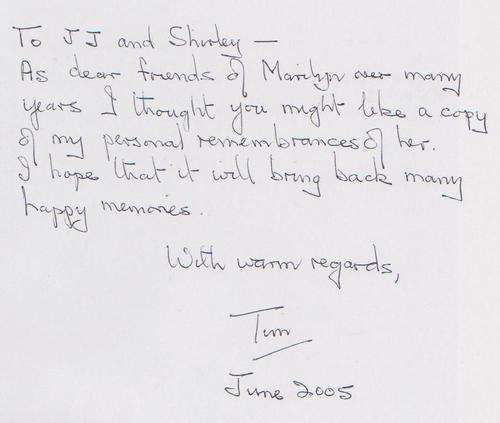 To JJ and Shirley —
As dear friends of Marilyn over many
years I thought you might like a copy
of my personal remembrances of her.
I hope that it will bring back many
happy memories.
With warm regards,
Tim
June 2005